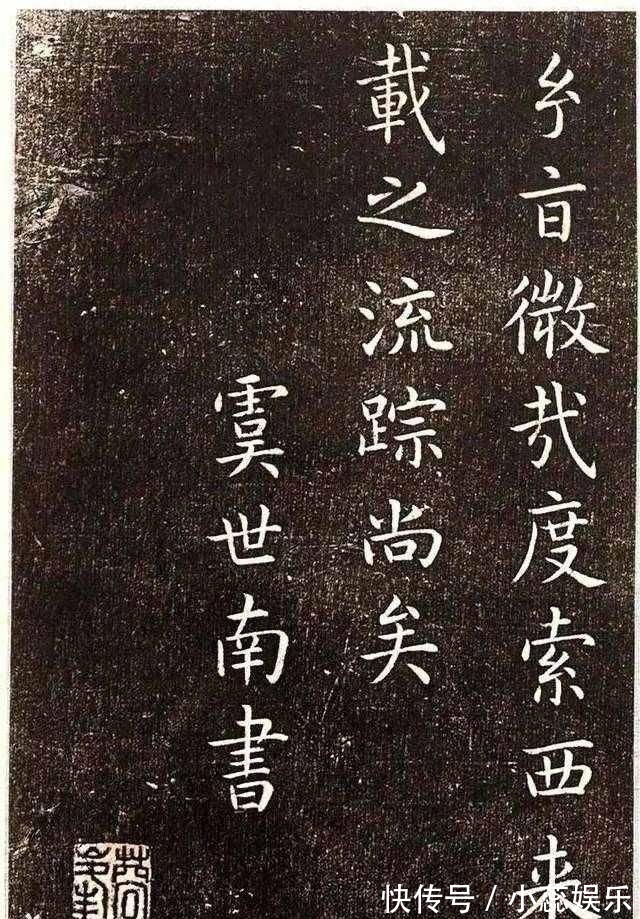 㫖微哉度索西来
載之流踪尚矣
虞世南書
快传号 / 小蕊娱乐